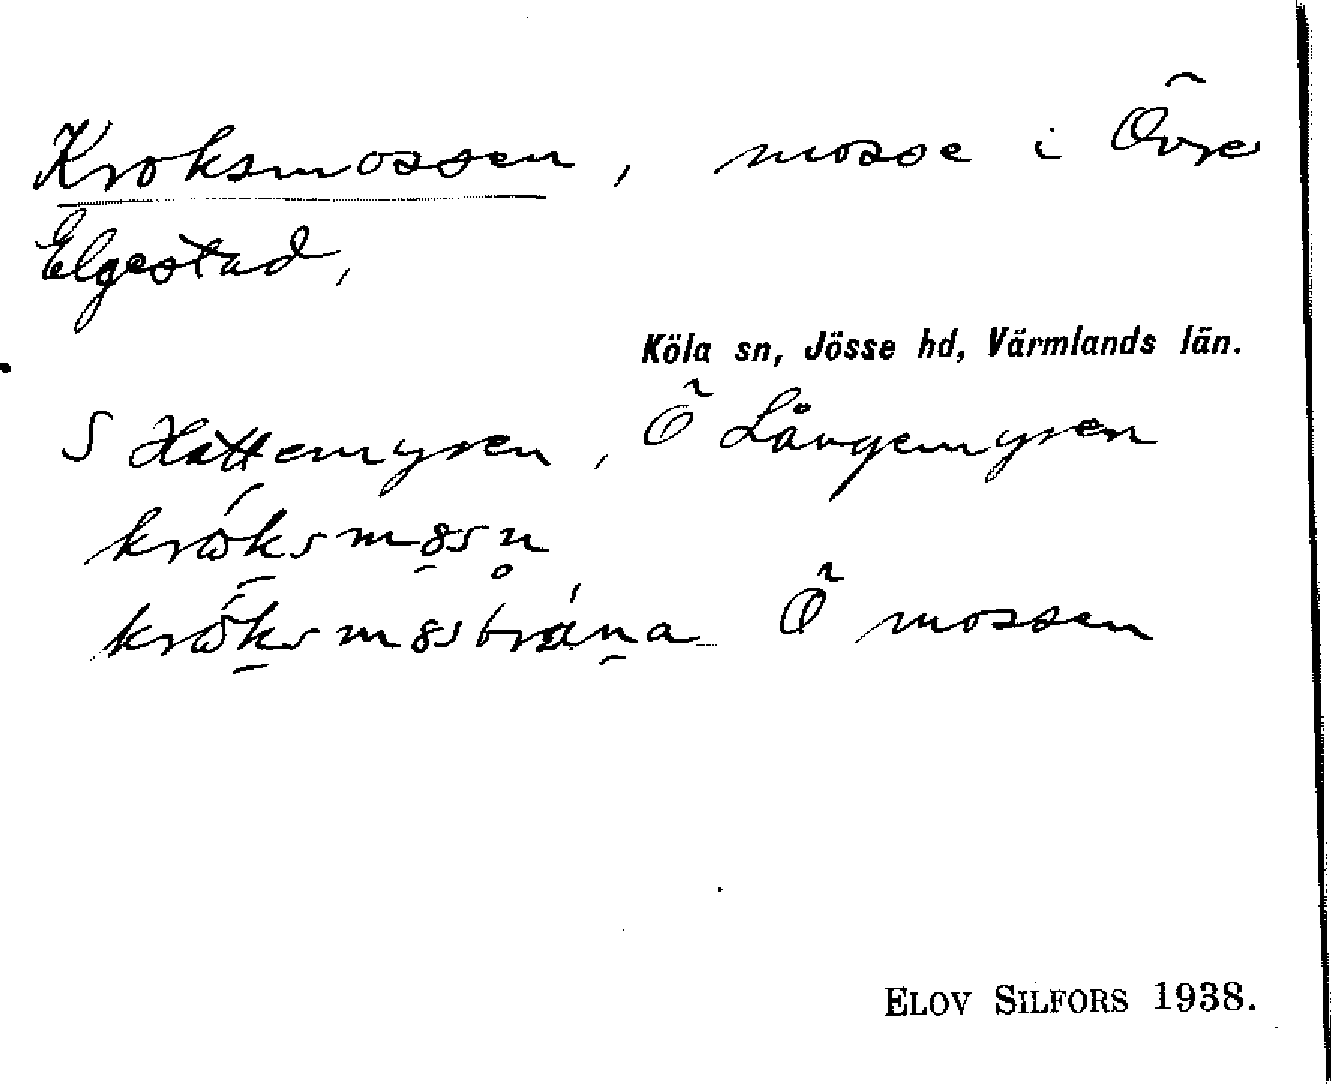 Kroksmossen, mosse i Övre
Elgestad,
Köla sn, Jösse hd, Värmlands län.
S Hattemyren, Ö Långemyren
Ö mossen
ELOV SILFORS 1938.